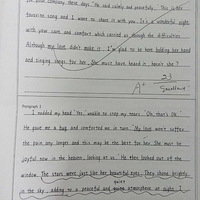 for your company these days." He said calmly and peacefully, "This is her
favorite song and I want to share it with you. It's a wonderful night
with your care and comfort which carried us through the difficulties.
Although my love didn't make it. I'm glad to be here holding her hand
and singing songs for her. She must have heard it, hasn't she?
23
A+ Excellent
Paragraph 2
I nodded my head "Yes," unable to stop my tears. "Oh, that's ok."
He gave me a hug and comforted me in turn. "My love won't suffer
the pain any longer and this may be the best for her. She must be
joyful now in the heaven, looking at us." He then looked out of the
window. The stars were just like her beautiful eyes. They shone brightly
quiet
in the sky, adding to a peaceful and atmosphere at night. I